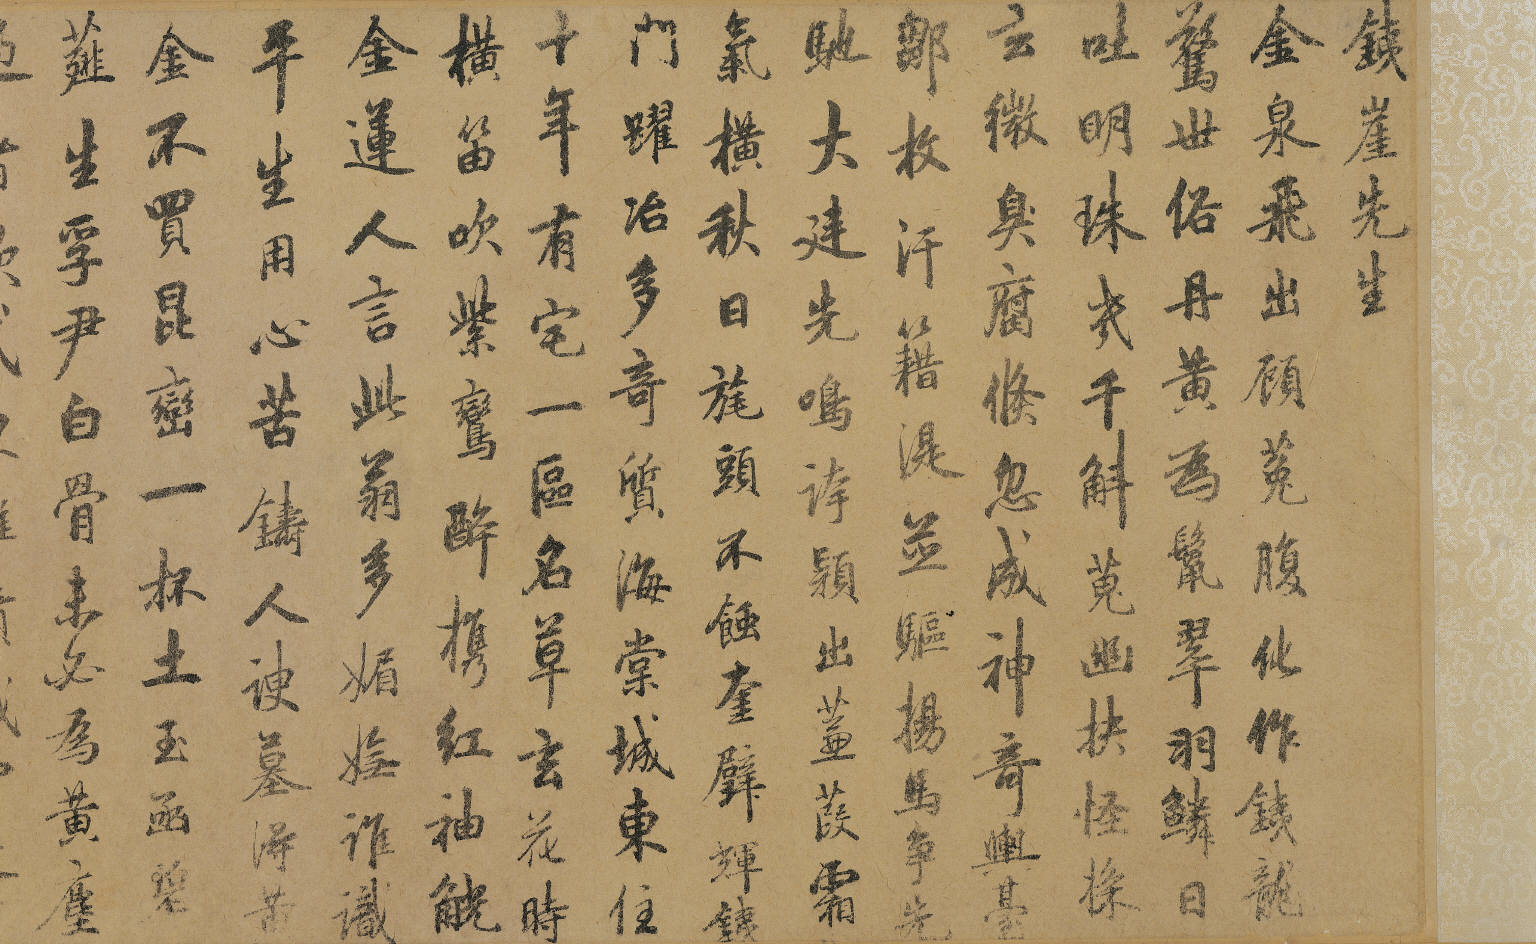 鐵崖先生
金泉飛出顧菟腹化作鐵龍
驚世俗丹黃為鬣翠羽鱗日
吐明珠光千斛蒐幽抉怪探
玄微臭腐倏忽成神奇輿臺
鄒枚汗籍湜並驅揚馬争先
馳大建先鳴誇穎出蓋葭霜
氣橫秋日旄頭不蝕奎璧輝鐵
門躍冶多奇質海棠城東住
十年有宅一區名草玄花時
橫笛吹紫鸞醉攜紅袖觥
金蓮人言此翁多媚嫵誰識
平生用心苦鑄人諛墓得黃
金不買昆巒一抔土玉函碧
薤生孚尹白骨未必為黃塵